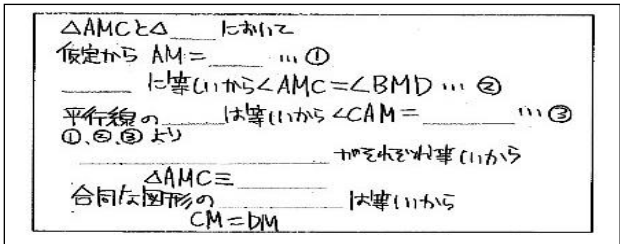 △AMCと△____において
仮定から AM=____ …①
____に等しいから∠AMC=∠BMD…②
平行線の____は等しいから∠CAM=____ …③
①、②、③より
____がそれぞれ等しいから
△AMC≡____
合同な図形の____は等しいから
CM=DM